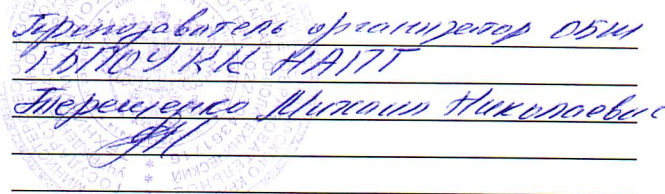 Преподаватель организатор ОБЖ
ГБПОУ КК НАПТ
Терещенко Михаил Николаевич